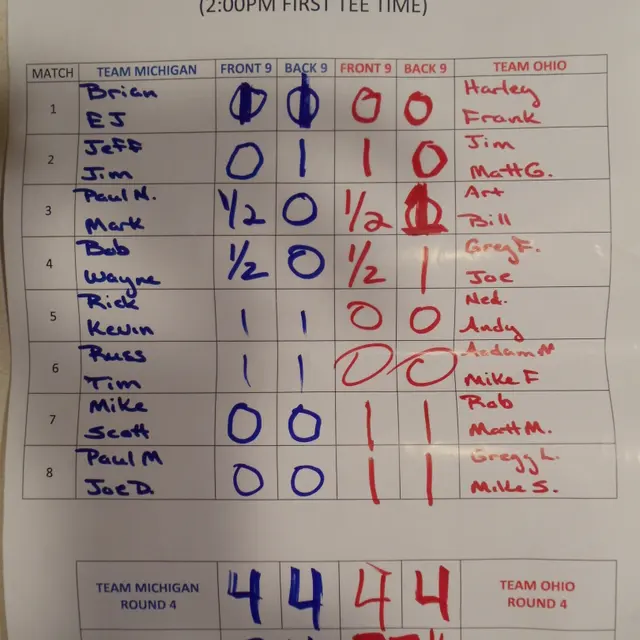 (2:00PM FIRST TEE TIME)
MATCH TEAM MICHIGAN FRONT 9 BACK 9 FRONT 9 BACK 9 TEAM OHIO
1 Brian EJ 1 1 0 0 Harley Frank
2 Jeff Jim 0 1 1 0 Jim Matt G.
3 Paul N. Mark 1/2 0 1/2 1 Art Bill
4 Bob Wayne 1/2 0 1/2 1 Greg F. Joe
5 Rick Kevin 1 1 0 0 Ned. Andy
6 Russ Tim 1 1 0 0 Mike F
7 Mike Scott 0 0 1 1 Rob Matt M.
8 Paul M Joe D. 0 0 1 1 Gregg L. Mike S.
TEAM MICHIGAN ROUND 4 4 4 4 4 TEAM OHIO ROUND 4